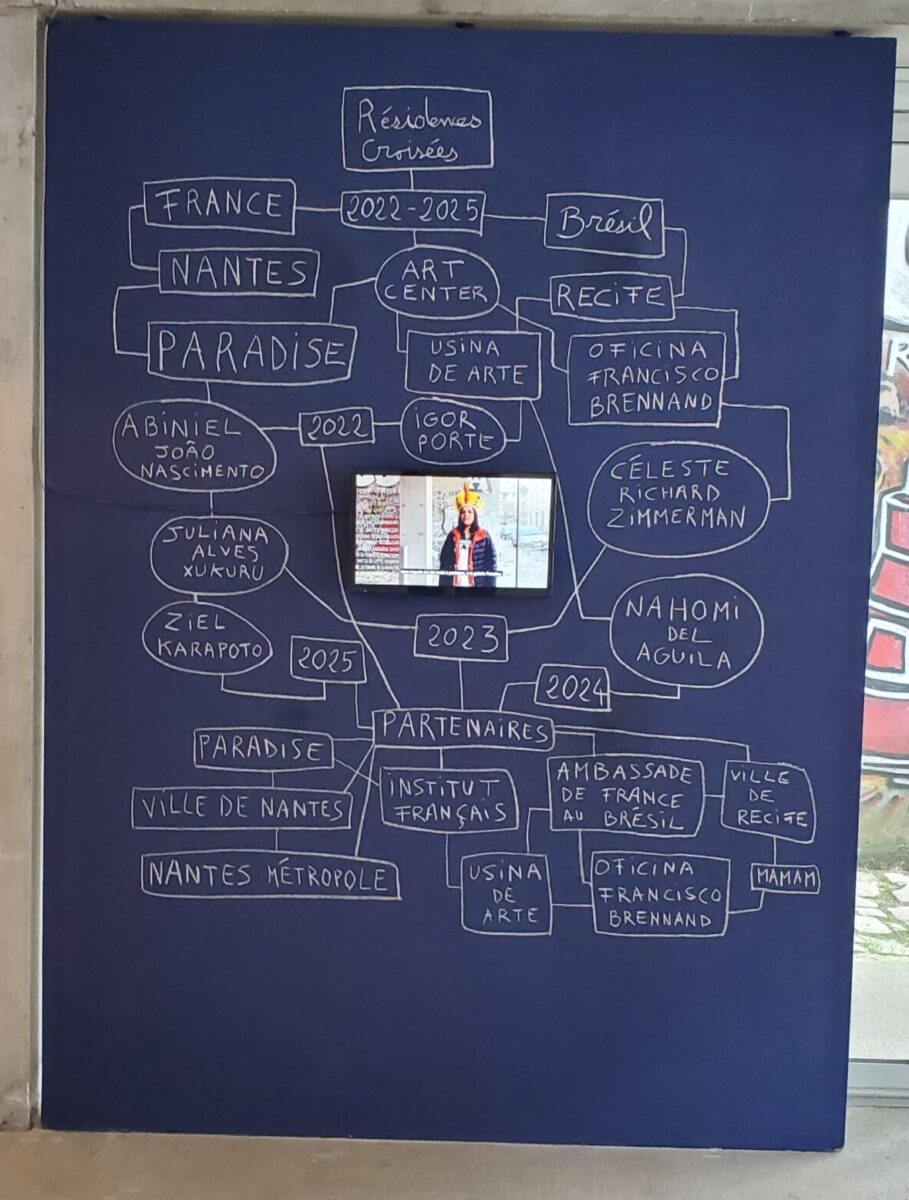 Résidences
Croisées
FRANCE
2022-2025
Brésil
NANTES
ART
CENTER
RECIFE
PARADISE
USINA
DE ARTE
OFICINA
FRANCISCO
BRENNAND
ABINIEL
JOÃO
NASCIMENTO
2022
IGOR
PORTE
CÉLESTE
RICHARD
ZIMMERMAN
JULIANA
ALVES
XUKURU
ZIEL
KARAPOTO
2025
2023
NAHOMI
DEL
AGUILA
2024
PARTENAIRES
PARADISE
INSTITUT
FRANÇAIS
AMBASSADE
DE FRANCE
AU BRÉSIL
VILLE
DE
RECIFE
VILLE DE NANTES
NANTES MÉTROPOLE
USINA
DE
ARTE
OFICINA
FRANCISCO
BRENNAND
MAMAM